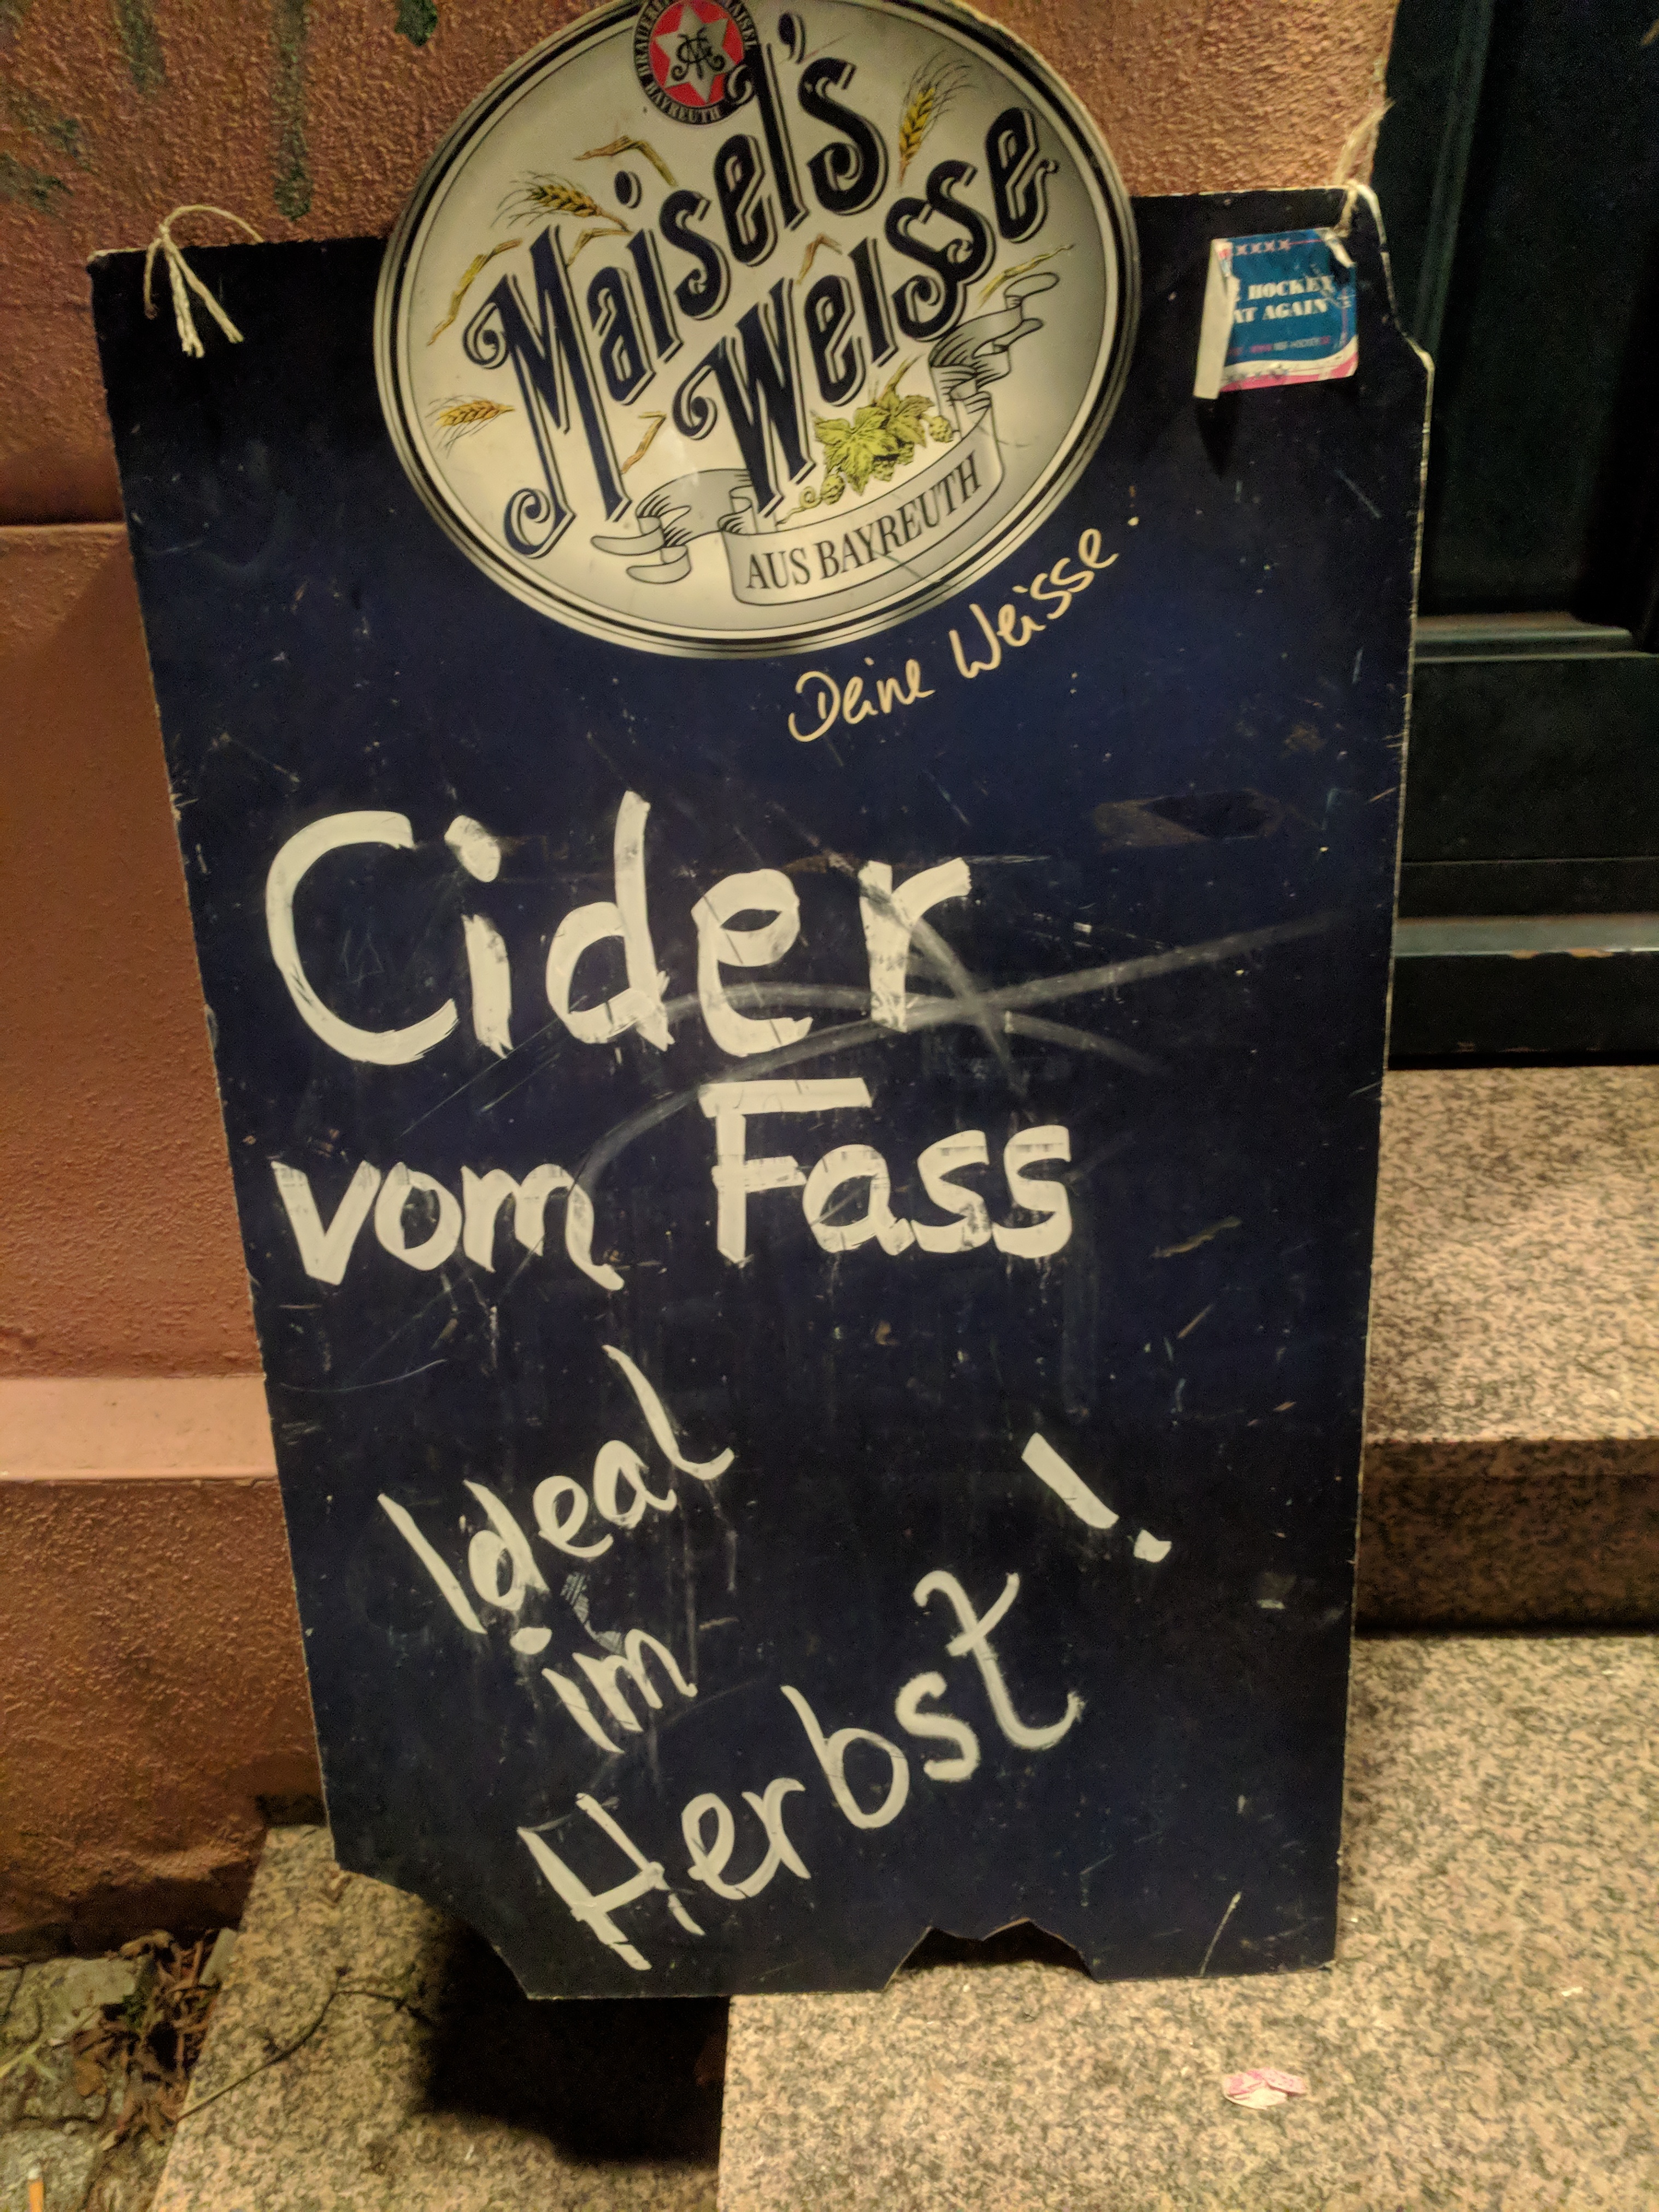 BRAUEREI MAISEL
BAYREUTH
Maisel's
Weisse
AUS BAYREUTH
Deine Weisse.
HOCKEY
AGAIN
Cider
vom Fass
Ideal
im
Herbst!